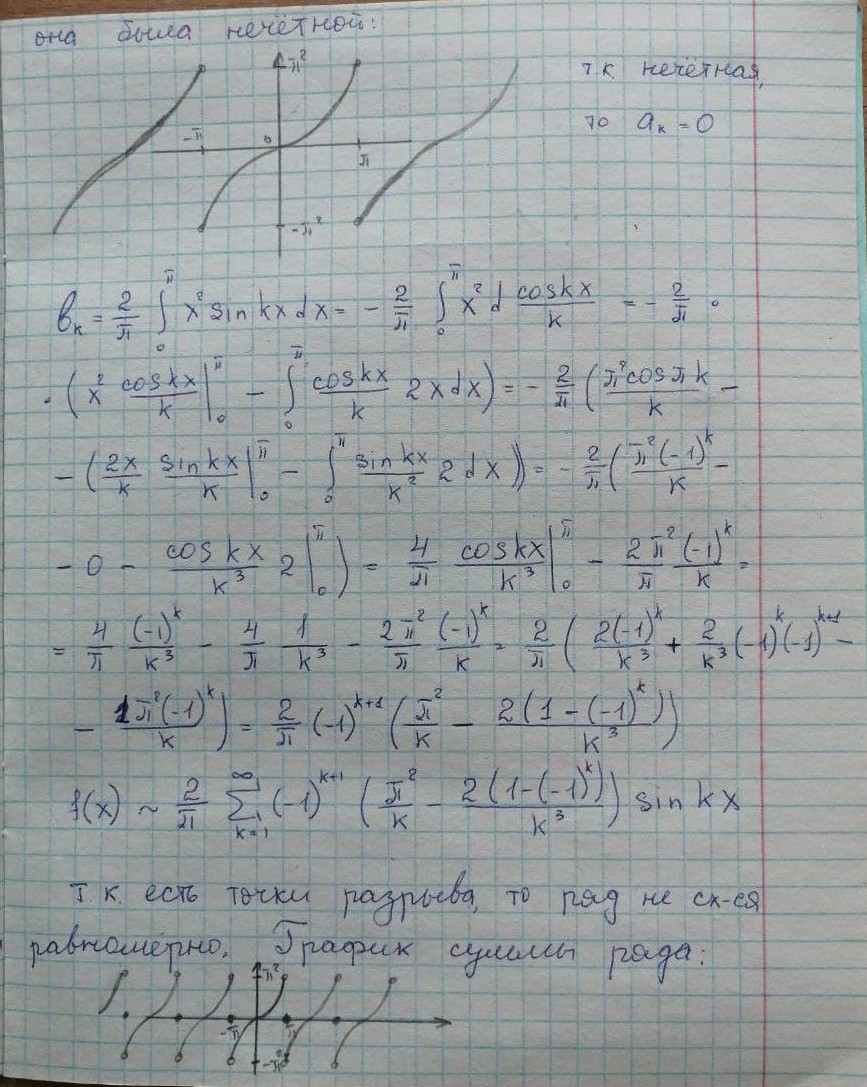 она была нечётной:
π²
т.к. нечётная,
-π 0 π
то aₖ = 0
-π²
bₖ = 2/π ∫₀^π x² sin kx dx = - 2/π ∫₀^π x² d cos kx/k = - 2/π ·
· ( x² cos kx/k |₀^π - ∫₀^π cos kx/k 2x dx ) = - 2/π ( π² cos πk/k -
- ( 2x/k sin kx/k |₀^π - ∫₀^π sin kx/k² 2 dx ) ) = - 2/π ( π² (-1)^k/k -
- 0 - cos kx/k³ 2 |₀^π ) = 4/π cos kx/k³ |₀^π - 2π²/π (-1)^k/k =
= 4/π (-1)^k/k³ - 4/π 1/k³ - 2π²/π (-1)^k/k = 2/π ( 2(-1)^k/k³ + 2/k³ (-1)^k (-1)^(k+1) -
- 1π²(-1)^k/k ) = 2/π (-1)^(k+1) ( π²/k - 2(1-(-1)^k)/k³ )
f(x) ~ 2/π ∑_{k=1}^∞ (-1)^(k+1) ( π²/k - 2(1-(-1)^k)/k³ ) sin kx
т.к. есть точки разрыва, то ряд не сх-ся
равномерно. График суммы ряда:
π²
-π π
-π²